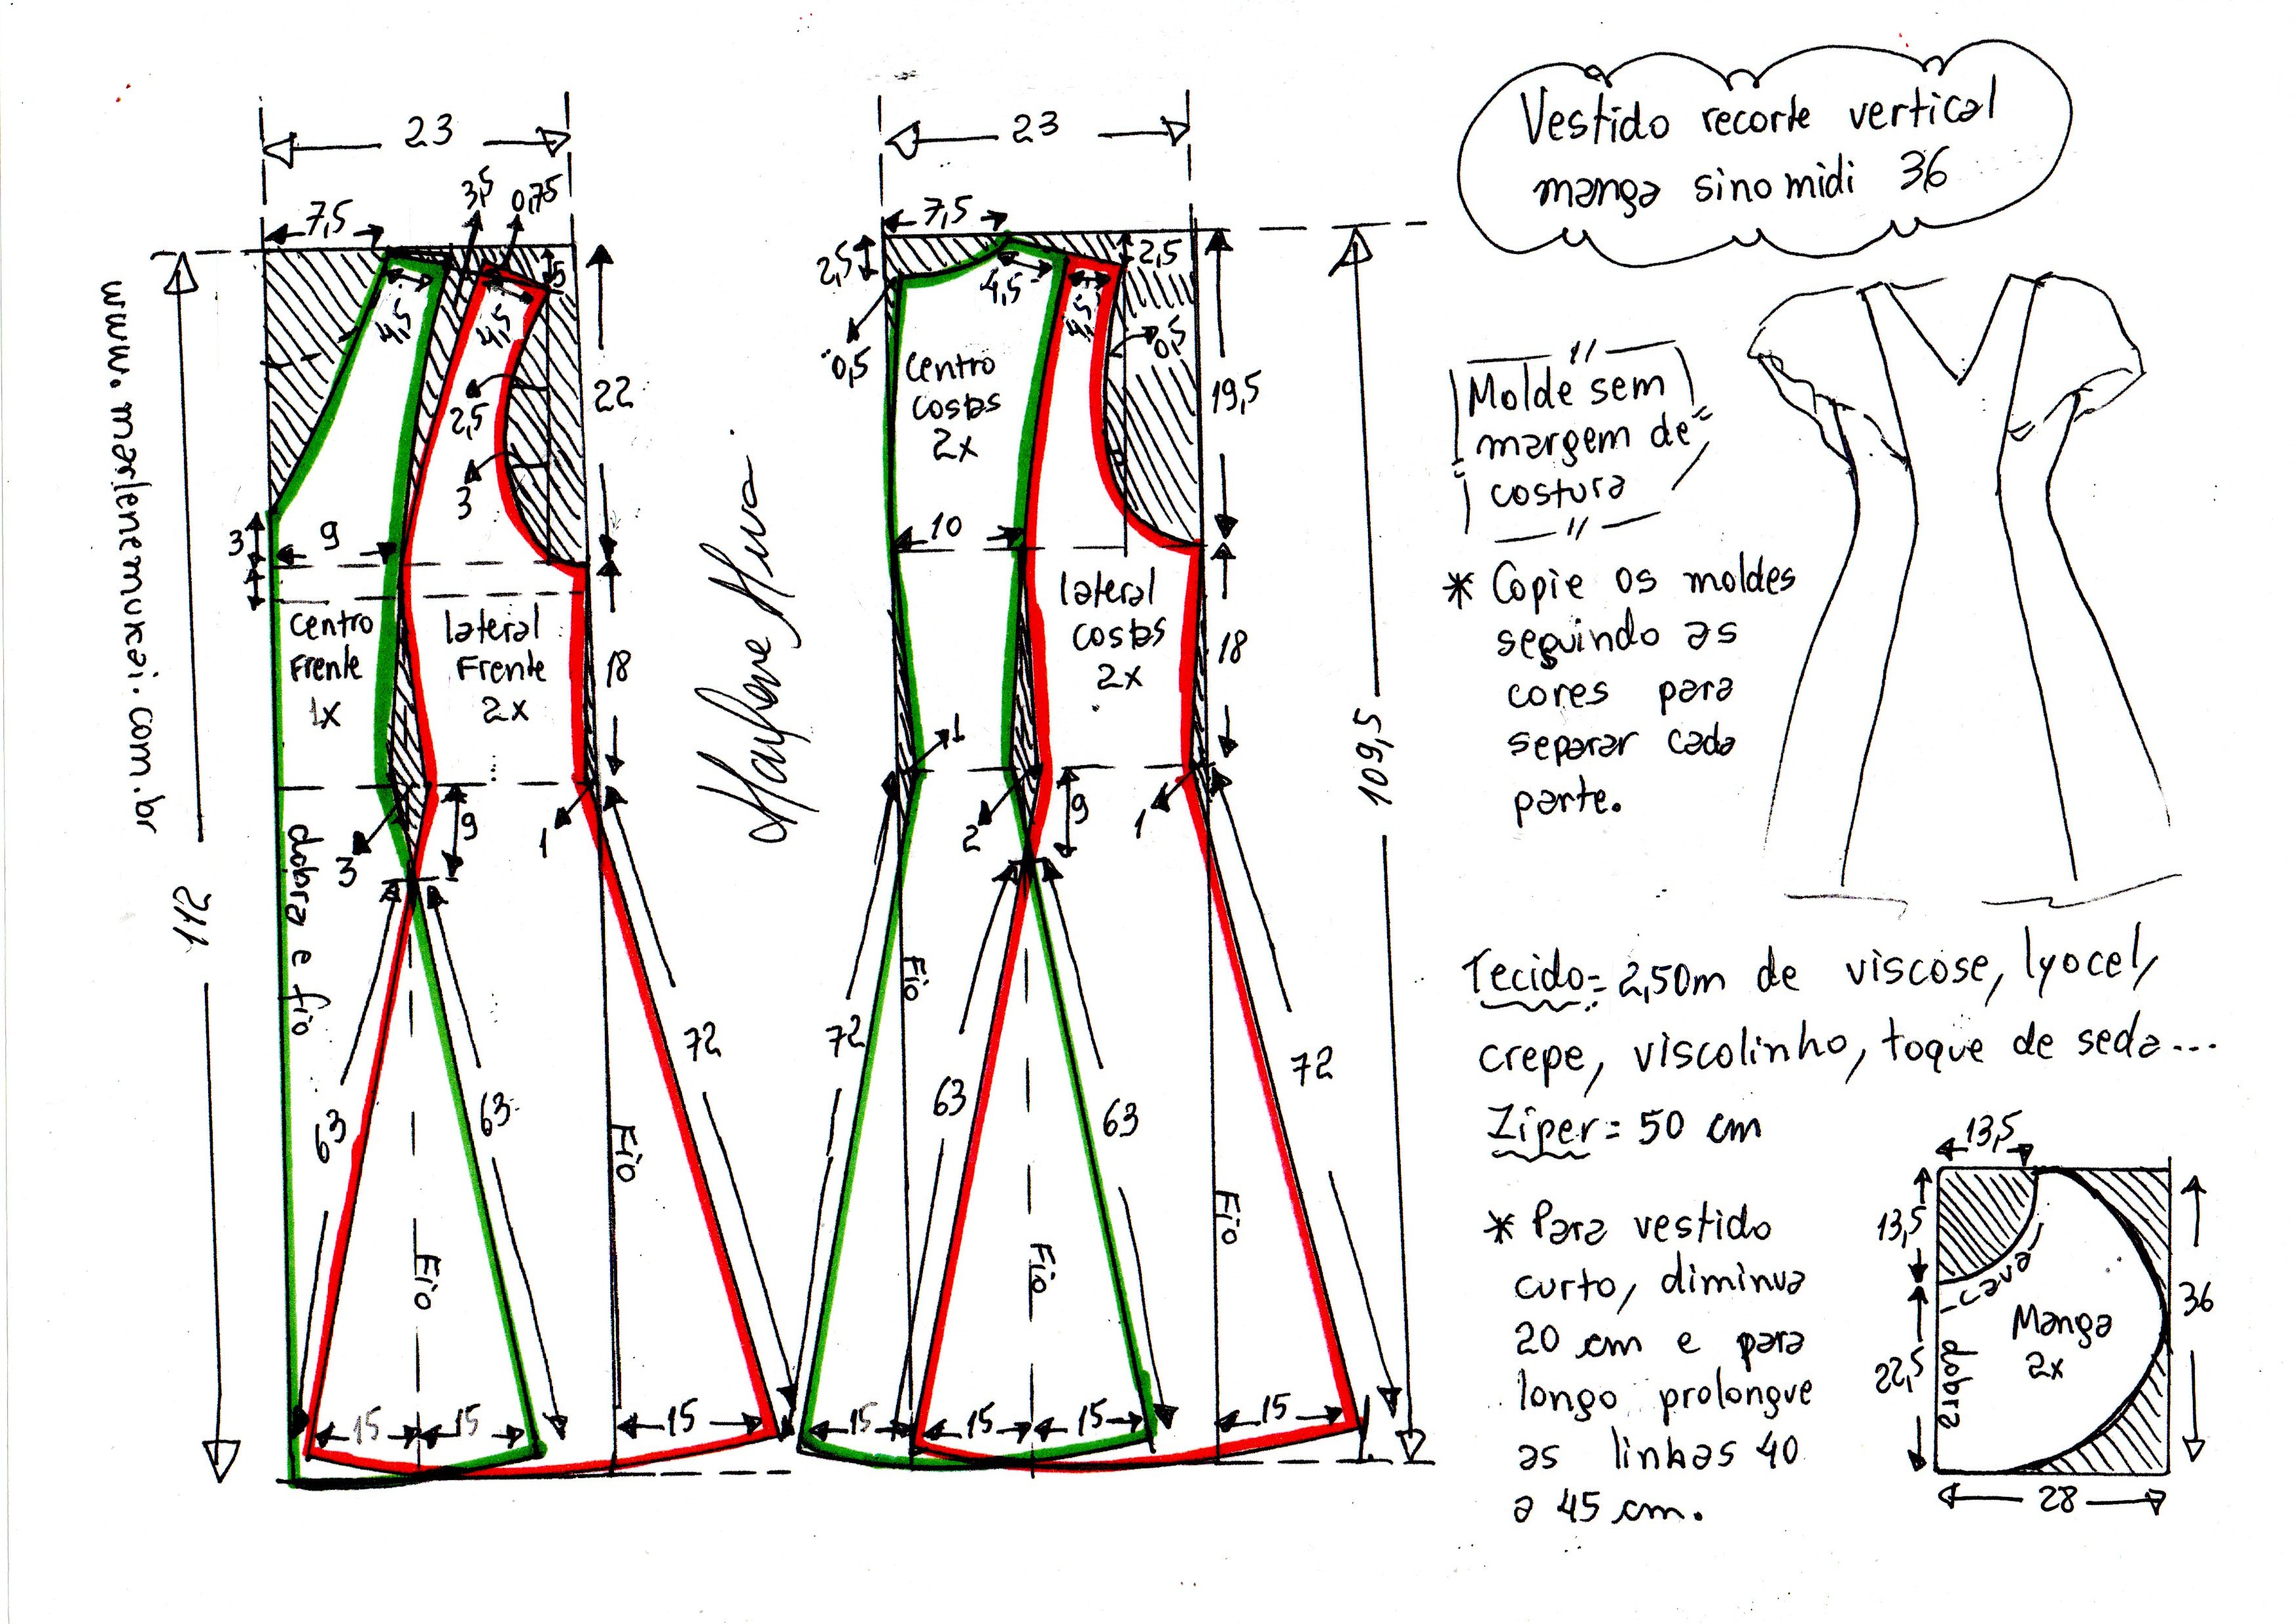 Vestido recorte vertical
manga sino midi 36
www.marlenemukai.com.br
23
7,5
3,5
0,75
5
4,5
4,5
2,5
3
22
3
9
Centro
Frente
1x
lateral
Frente
2x
18
9
3
1
dobra e fio
112
63
63
72
Fio
Fio
15
15
15
23
7,5
2,5
2,5
0,5
4,5
4,5
0,5
Centro
costas
2x
19,5
10
lateral
costas
2x
18
1
2
9
1
109,5
Fio
72
63
63
72
Fio
Fio
15
15
15
15
Molde sem
margem de
costura
* Copie os moldes
seguindo as
cores para
separar cada
parte.
Tecido= 2,50m de viscose, lyocel,
crepe, viscolinho, toque de seda...
Ziper= 50 cm
* Para vestido
curto, diminua
20 cm e para
longo prolongue
as linhas 40
a 45 cm.
13,5
13,5
cava
Manga
2x
dobra
22,5
36
28